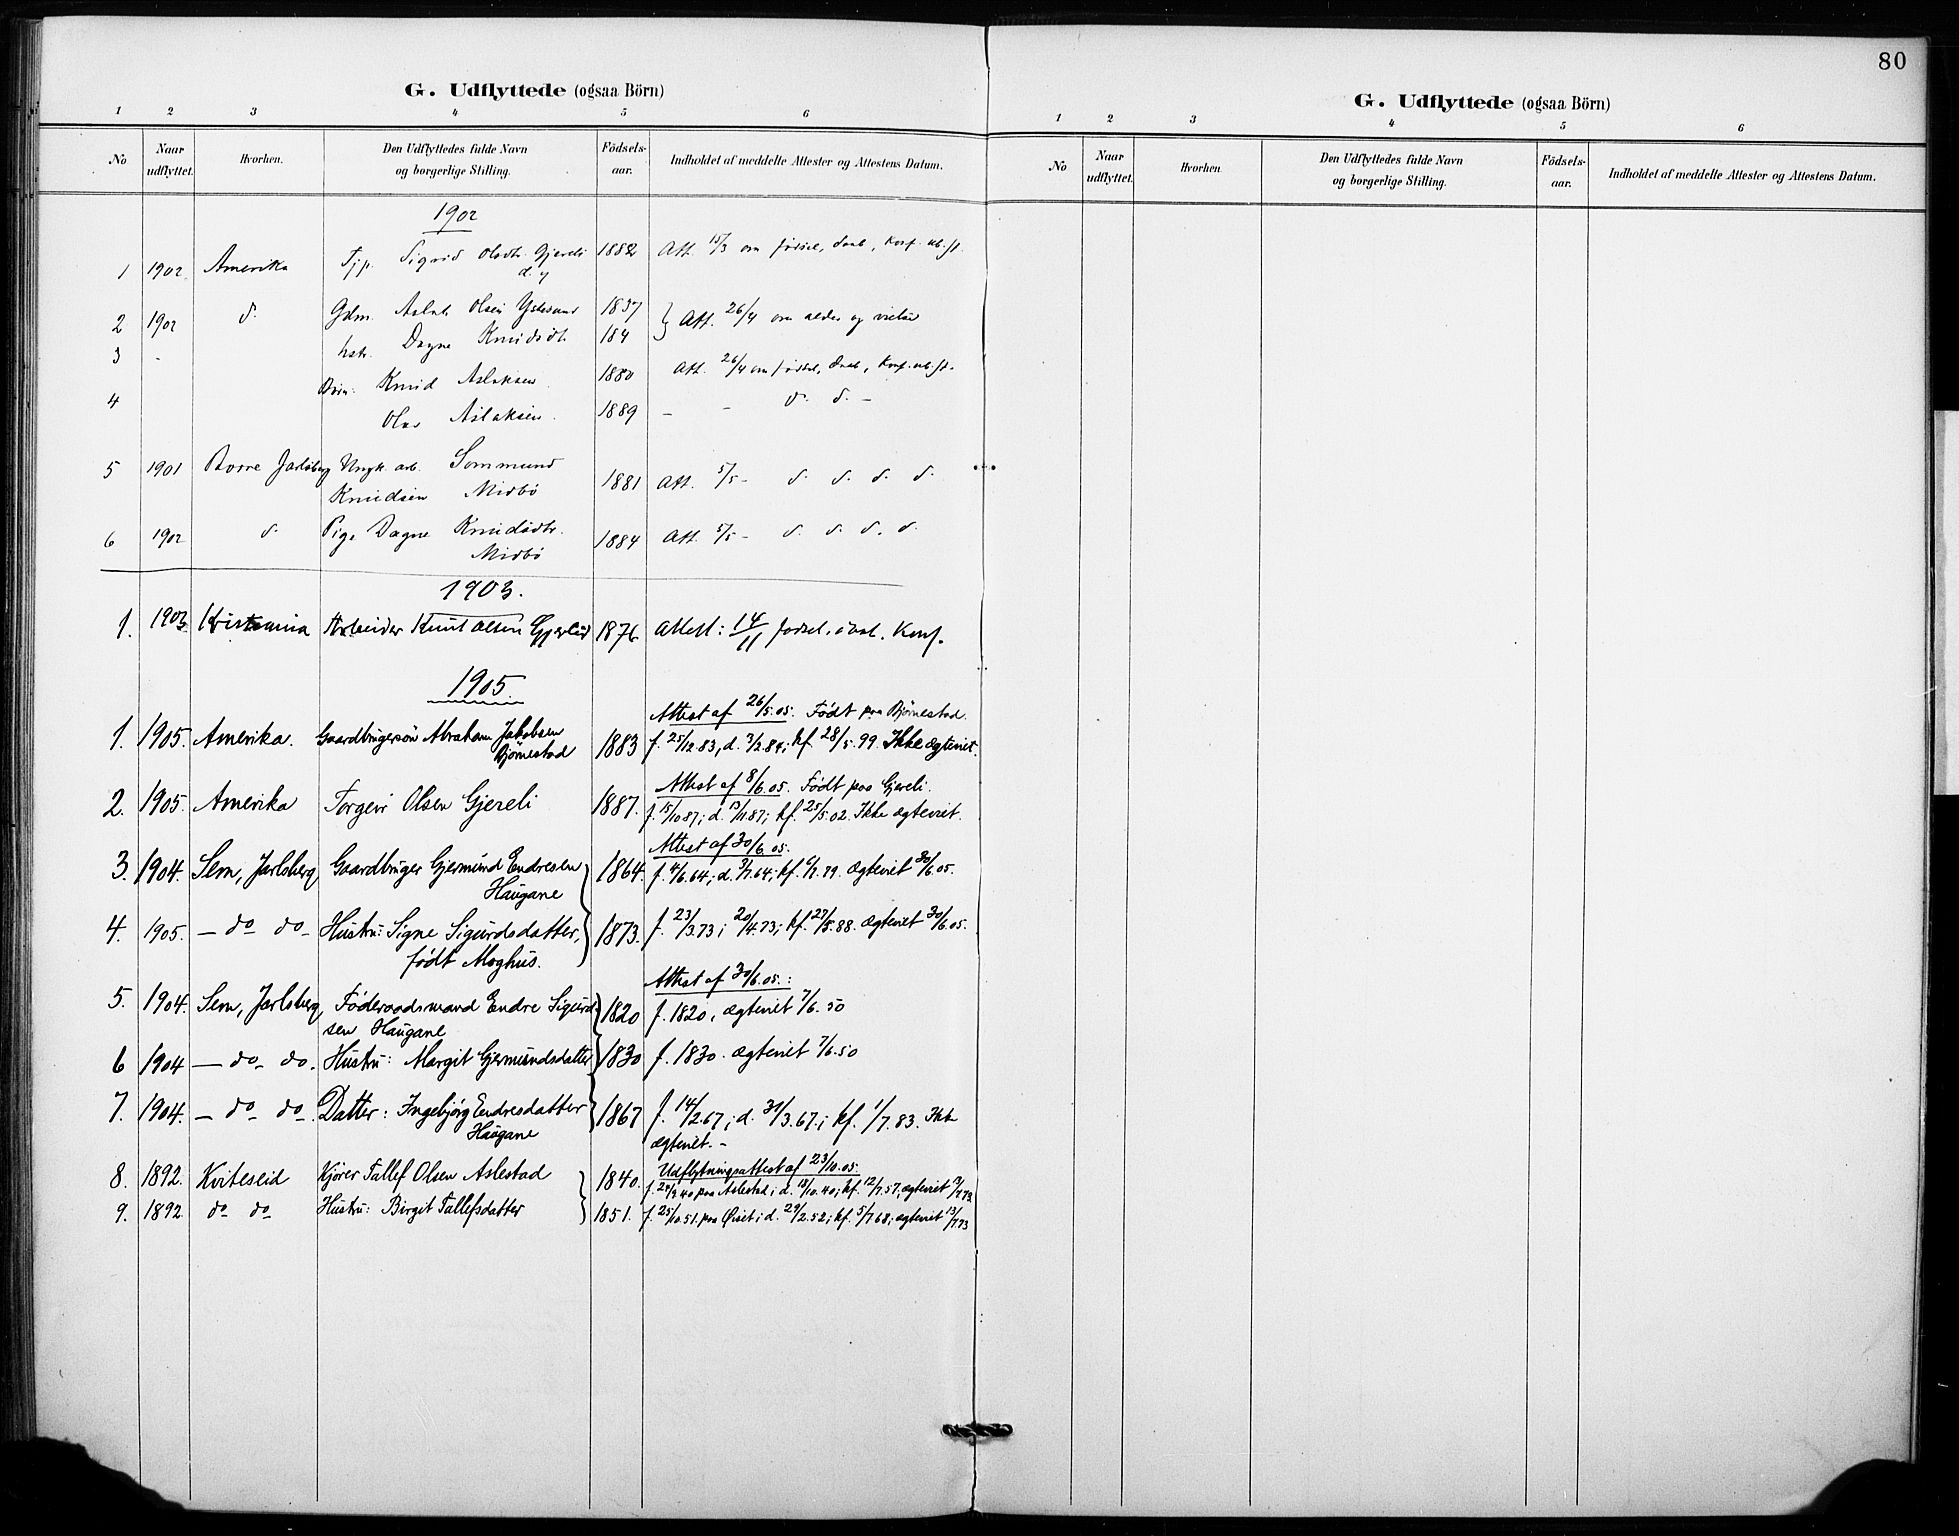 80
G. Udflyttede (ogsaa Börn)
1 2 3 4 5 6
No Naar udflyttet. Hvorhen. Den Udflyttedes fulde Navn og borgerlige Stilling. Födselsaar. Indholdet af meddelte Attester og Attestens Datum.
1902
1 1902 Amerika Sigrid Olsdtr. Gjereli 1882 Att. 15/3 om fødsel, daab, konf.
d.y
2 1902 d. Gdm. Aslak Olsen 1837 Att. 26/4 om alder og vielse
3 - hstr. Dagne Knudsdtr. 184
Børn: Knud Aslaksen 1880 Att. 26/4 om fødsel, daab, konf.
4 Olav Aslaksen. 1889 - - d. d. -
5 1901 Borre Jarlsberg Ungk. arb.
Knudsen Midbö 1881 Att. 5/5 - d. d. d. d.
6 1902 d. Pige Dagne Knudsdtr. 1884 Att. 5/5 - d. d. d. d.
Midbö
1903.
1. 1903 Kristiania Arbeider Knut Olsen Gjerelid 1876 Attest: 14/11 fødsel, daab. Konf.
1905.
Attest af 26/5.05. Födt paa Bjørnestad.
1. 1905. Amerika. Gaardbrugersøn Abraham Jakobsen 1883 f. 25/12.83, d. 3/2.84; kf. 28/5.99. Ikke ægteviet.
Bjørnestad
Attest af 8/6.05. Födt paa Gjereli.
2. 1905. Amerika Torgeir Olsen Gjereli 1887. f. 15/10 87; d. 13/11 87; kf. 25/5.02. Ikke ægteviet.
Attest af 30/6.05.
3. 1904. Sem, Jarlsberg Gaardbruger Gjermund Endresen 1864. f. 4/6.64; d. 3/7.64; kf. 6/7.79. Ægteviet 30/6.05.
Haugane
4. 1905. - do do - Hustru: Signe Sigurdsdatter, 1873. f. 23/3.73; 20/4.73; kf. 27/5.88. Ægteviet 30/6.05.
född Moghus.
Attest af 30/6.05.:
5. 1904. Sem, Jarlsberg, Föderaadsmand Endre Sigurd- 1820 f. 1820, ægteviet 7/6.50
sen Haugane
6 1904 - do - do. Hustru: Margit Gjermundsdatter 1830 f. 1830. Ægteviet 7/6.50
7. 1904. - do - do -. Datter: Ingebjörg Endresdatter 1867 f. 14/2.67; d. 31/3.67.; kf. 1/7.83. Ikke
Haugane ægteviet. -
Udflytningsattest af 23/10.05:
8. 1892. Kviteseid Kjører Tallef Olsen Aslestad 1840. f. 24/9 40 paa Aslestad; d. 18/10.40; kf. 12/7.57; ægteviet
9. 1892 do do Hustru: Birgit Tallefsdatter 1851. f. 25/10.51. paa; d. 29/2.52; kf. 5/7 68; ægteviet 13/7.73
G. Udflyttede (ogsaa Börn)
1 2 3 4 5 6
No Naar udflyttet. Hvorhen Den Udflyttedes fulde Navn og borgerlige Stilling. Födselsaar. Indholdet af meddelte Attester og Attestens Datum.